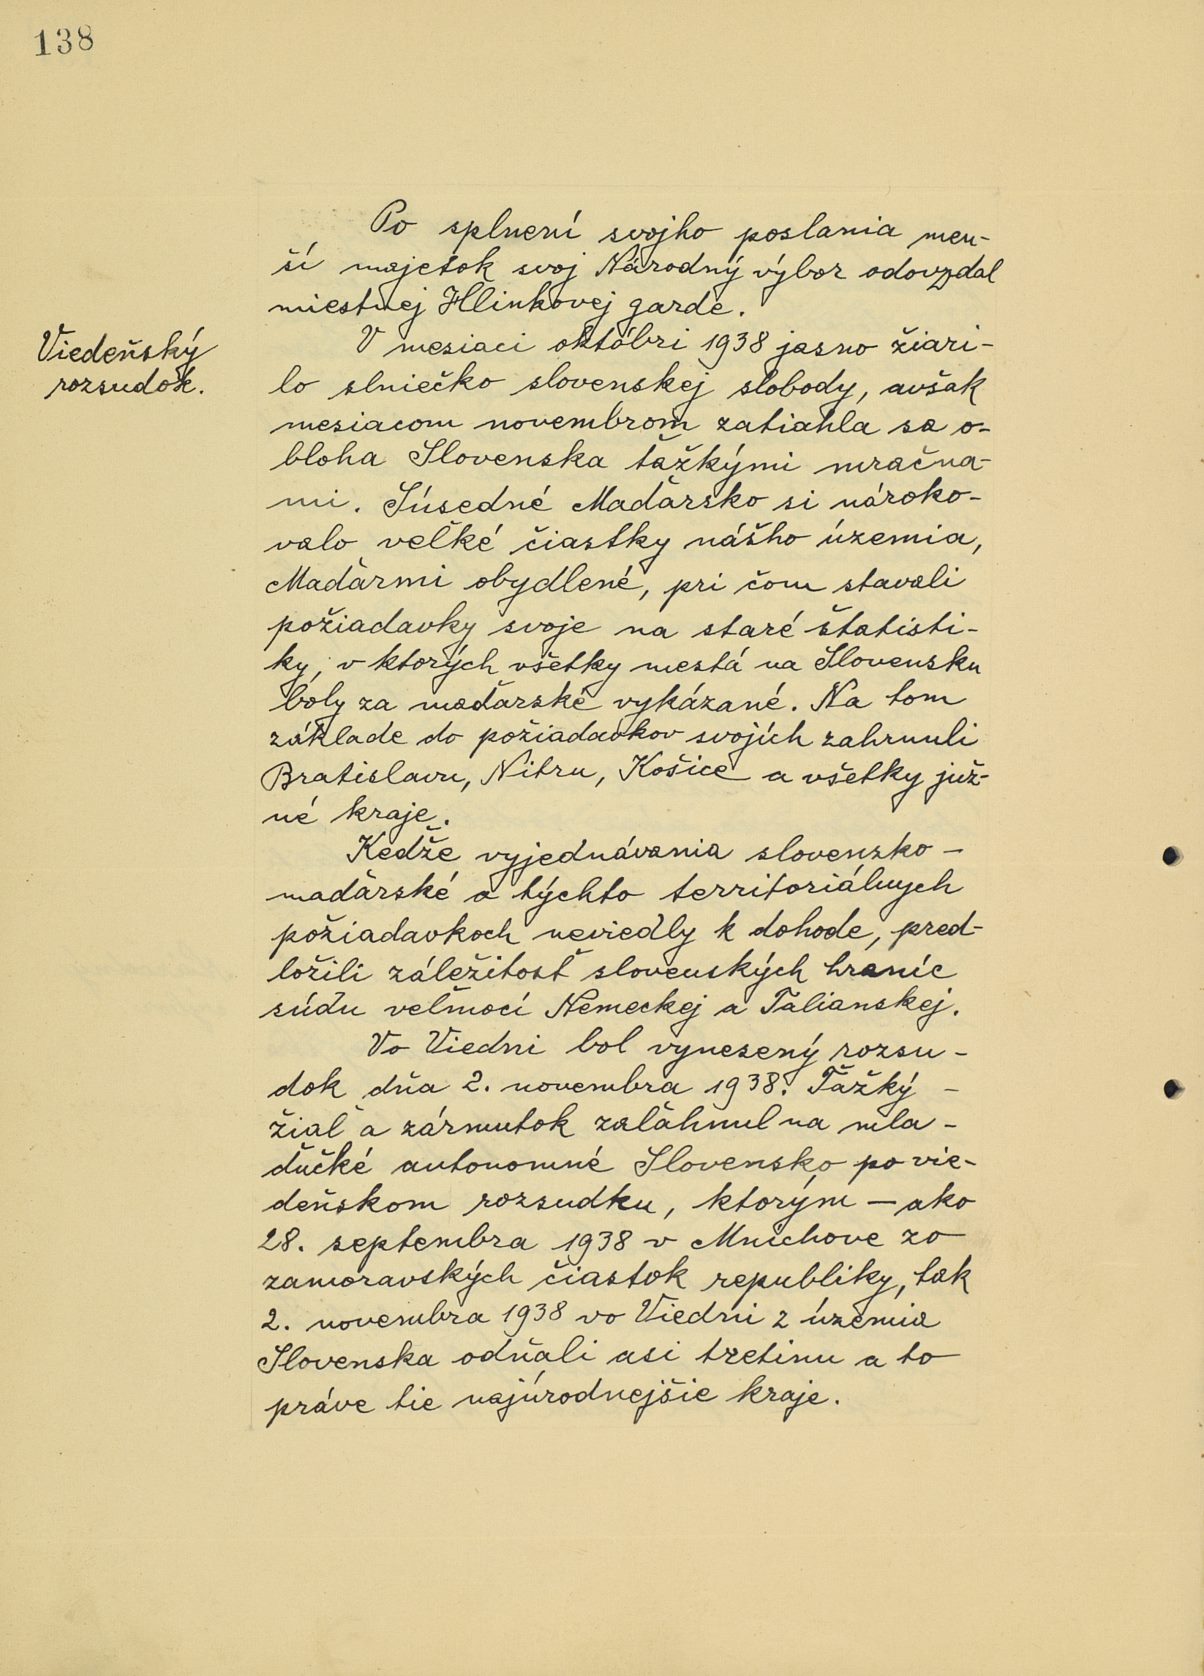 138
Po splnení svojho poslania men-
ší majetok svoj Národný výbor odovzdal
miestnej Hlinkovej garde.
Viedeňský
rozsudok.
V mesiaci októbri 1938 jasno žiari-
lo slniečko slovenskej slobody, avšak
mesiacom novembrom zatiahla sa o-
bloha Slovenska ťažkými mračna-
mi. Súsedné Maďarsko si nároko-
valo veľké čiastky nášho územia,
Maďarmi obydlené, pri čom stavali
požiadavky svoje na staré štatisti-
ky, v ktorých všetky mestá na Slovensku
boly za maďarské vykázané. Na tom
základe do požiadavkov svojích zahrnuli
Bratislavu, Nitru, Košice a všetky juž-
né kraje.
Kedže vyjednávania slovensko -
maďarské o týchto territoriálnych
požiadavkoch neviedly k dohode, pred-
ložili záležitosť slovenských hraníc
súdu veľmocí Nemeckej a Talianskej.
Vo Viedni bol vynesený rozsu-
dok dňa 2. novembra 1938. Ťažký -
žiaľ a zármutok zaľahnul na mla-
ďučké autonomné Slovensko po vie-
deňskom rozsudku, ktorým — ako
28. septembra 1938 v Mnichove zo
zamoravských čiastok republiky, tak
2. novembra 1938 vo Viedni z územia
Slovenska odňali asi tretinu a to
práve tie najúrodnejšie kraje.